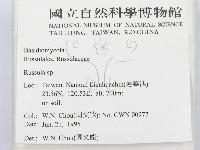 國立自然科學博物館
NATIONAL MUSEUM OF NATURAL SCIENCE
TAICHUNG, TAIWAN, R.O.CHINA
Basidiomycota
Russulales, Russulaceae
Russula sp.
Loc: Taiwan, Nantou,
23.56N, 120.52E, alt. 700m.
on soil.
Col: W.N. Chou No: CWN 00977
Date: Jun. 21, 1995
Det: W.N. Chou